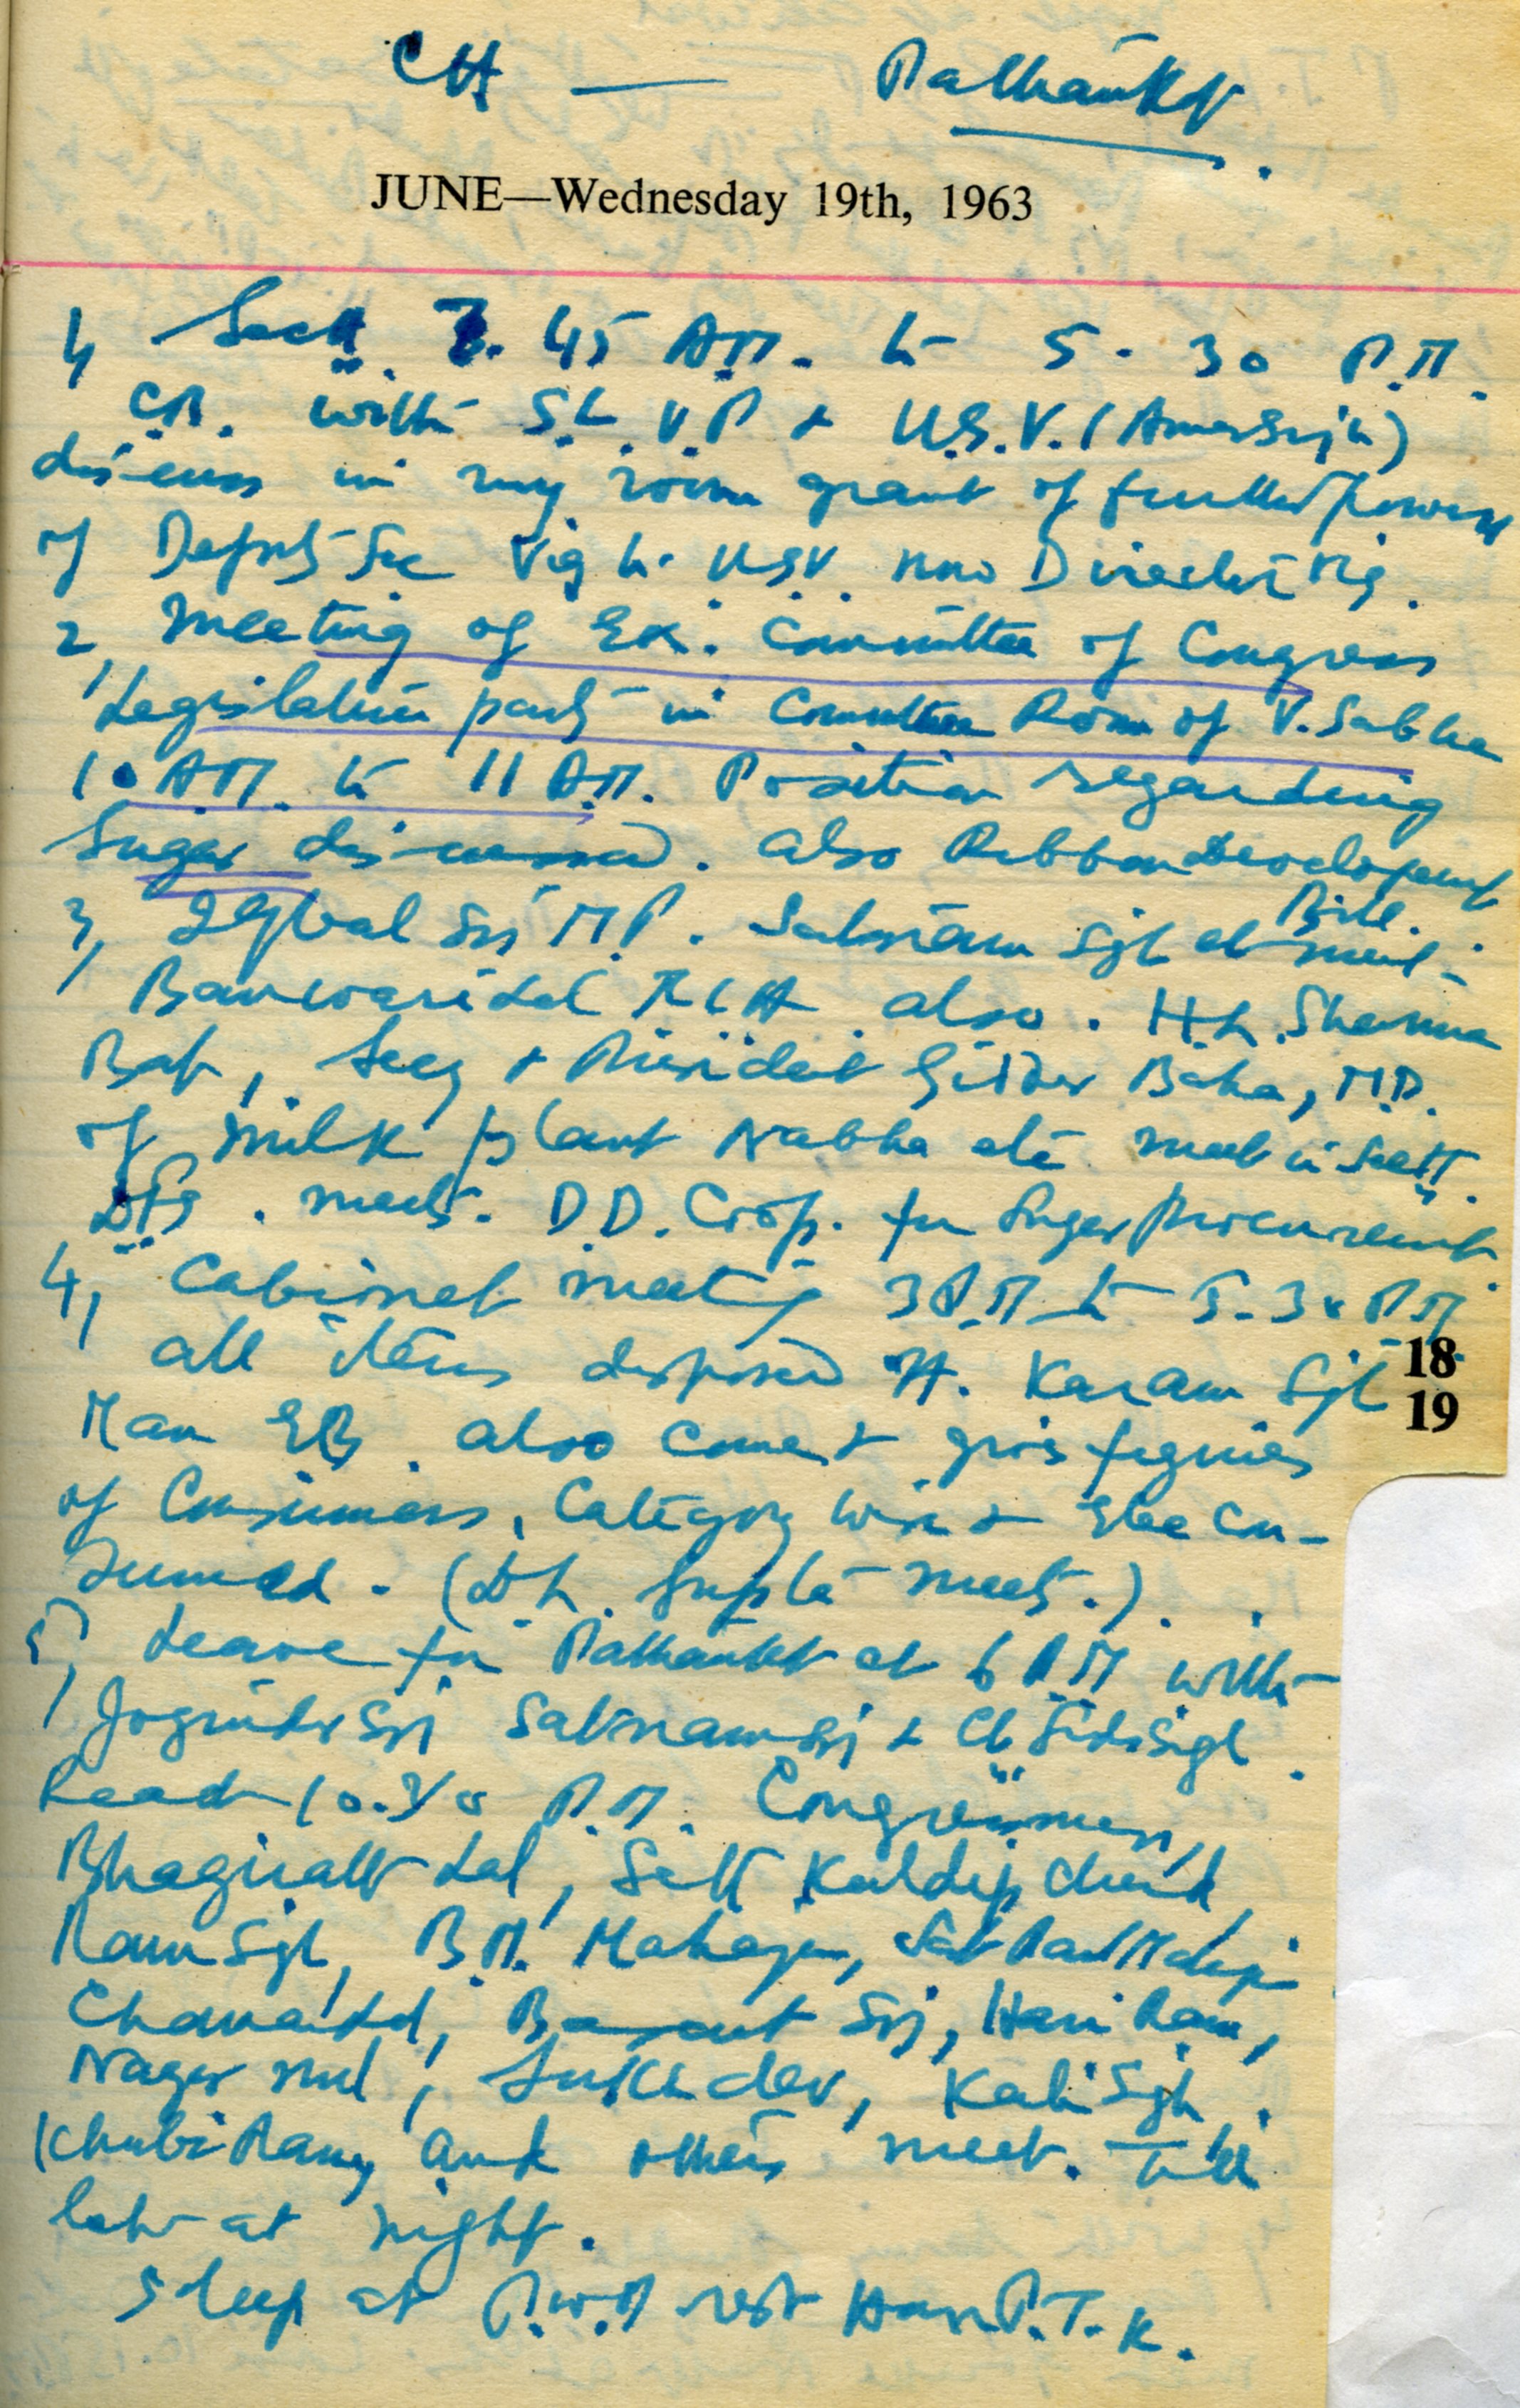 CH — Pathankt.
JUNE—Wednesday 19th, 1963
1, Sectt. 7. 45 A.M. to 5. 30 P.M.
C.M. with S.L.V.P & U.S.V. (Amar Singh)
discuss in my room grant of further powers
of Deputy Sec Vig to USV now Director Vig.
2, Meeting of Ex. Committee of Congress
Legislature party in Committee Room of V. Sabha
10 A.M. to 11 A.M. Position regarding
Sugar discussed. also Ribbon Development
Bill.
3, Iqbal Sgh M.P. Satnam Sgh et meet
Banwari Lal also. H.L. Sharma
Bat, Secy & President Gidder Baha, M.D.
of Milk plant Nabha etc meet in Sectt.
DFS. meets. D.D. Coop. for Sugar procurement.
4, Cabinet meeting 3 P.M to 5-30 PM
all items disposed off. Karam Sgh
18
19
Man EB also came & give figures
of Consumers, Category wise & Elec con-
sumed. (D.L. Gupta meets.)
5, Leave for Pathankt at 6 PM with
Joginder Sgh Satnam Sgh & Ch Sgh.
Reach 10.30 P.M. Congressmen,
Bhagirath Lal, Seth Kuldip Chand
Ram Sgh, B.M. Mahajan, Sat Pal
Lal, Basant Sgh, Hari Ram,
Nagar Mal, Sukhdev, Kali Sgh,
Khubi Ram and others meet. Till
late at night.
Sleep at P.W.D rest House P.T.K.